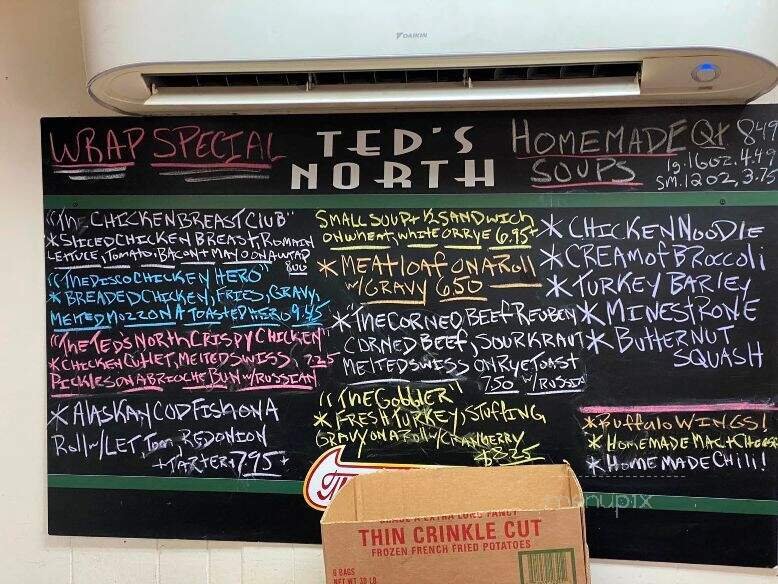 DAIKIN
WRAP SPECIAL
TED'S
NORTH
HOMEMADE Qt 8.49
SOUPS lg. 16oz. 4.49
SM. 12 OZ, 3.75
"The CHICKEN BREAST CLUB"
* SLICED CHICKEN BREAST, ROMAIN
LETTUCE, TOMATO, BACON + MAYO ON A WRAP
8.00
"THE DISCO CHICKEN HERO"
* BREADED CHICKEN, FRIES, GRAVY,
MELTED MOZZ ON A TOASTED HERO 9.45
"THE TEDS NORTH CRISPY CHICKEN"
* CHICKEN CUTLET, MELTED SWISS, 7.25
PICKLES ON A BRIOCHE BUN W/RUSSIAN
* ALASKAN COD FISH ON A
Roll w/ LET, Tom, RED ONION
+ TARTER 7.95+
SMALL SOUP + ½ SANDWICH
ON WHEAT, WHITE OR RYE 6.95+
* MEATLOAF ON A Roll
W/ GRAVY 6.50
* "THE CORNED BEEF REUBEN
CORNED BEEF, SOURKRAUT
MELTED SWISS ON RYE TOAST
7.50 W/ RUSSIAN
"THE GOBBLER"
* FRESH TURKEY, STUFFING
GRAVY ON A ROLL W/CRANBERRY
$8.25
* CHICKEN NOODLE
* CREAM OF BROCCOLI
* TURKEY BARLEY
* MINESTRONE
* BUTTERNUT
SQUASH
* Buffalo WINGS!
* HOMEMADE MAC + CHEESE
* HOME MADE Chili!
menupix
GRADE A EXTRA LONG FANCY
THIN CRINKLE CUT
FROZEN FRENCH FRIED POTATOES
6 BAGS
NET WT 30 LB